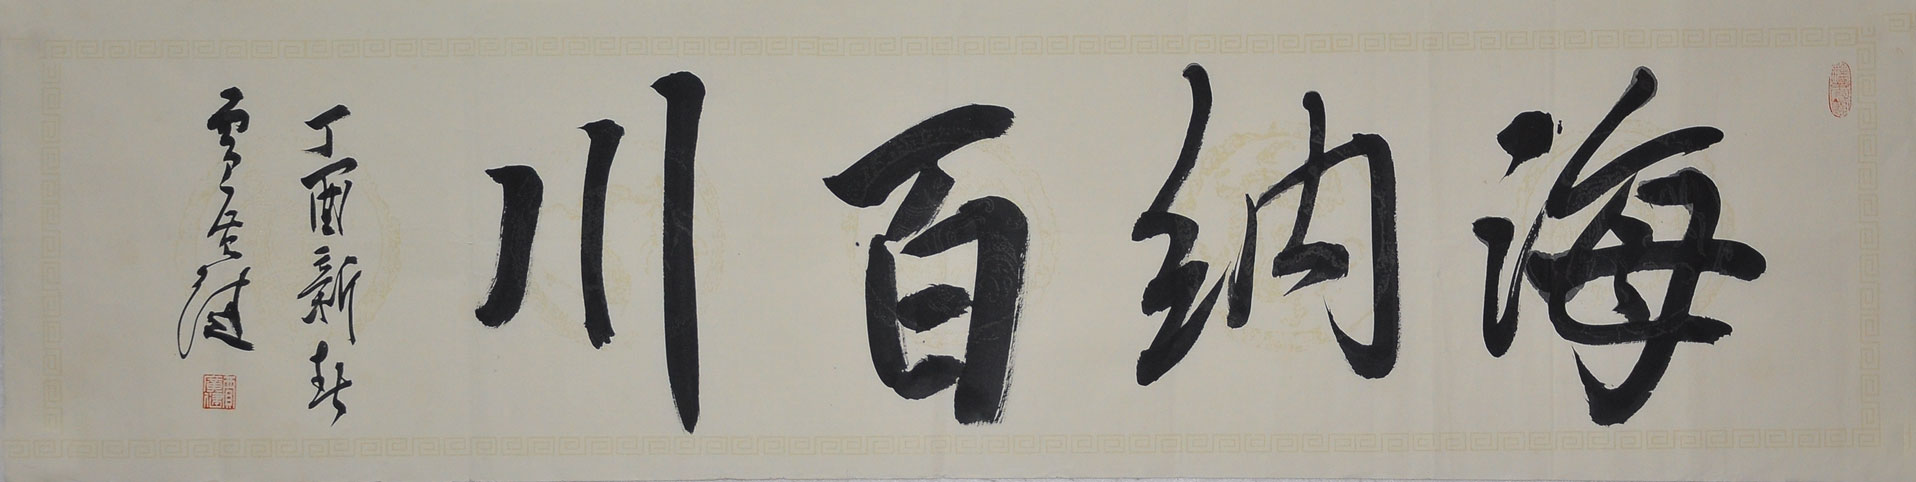 海纳百川
丁酉新春